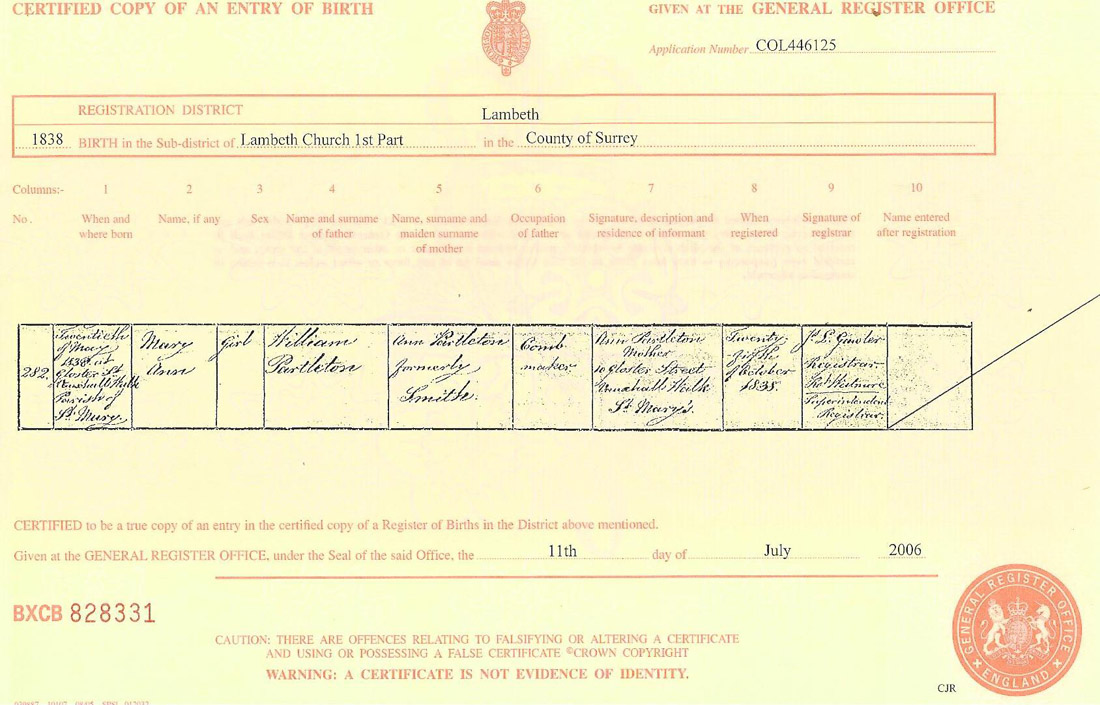 CERTIFIED COPY OF AN ENTRY OF BIRTH
GIVEN AT THE GENERAL REGISTER OFFICE
Application Number COL446125
REGISTRATION DISTRICT Lambeth
1838 BIRTH in the Sub-district of Lambeth Church 1st Part in the County of Surrey
Columns:- 1 2 3 4 5 6 7 8 9 10
No. When and where born
Name, if any
Sex
Name and surname of father
Name, surname and maiden surname of mother
Occupation of father
Signature, description and residence of informant
When registered
Signature of registrar
Name entered after registration
282
Twentieth
of May
1838 at
Gloster St
Vauxhall Walk
Parish of
St. Mary.
Mary
Ann
Girl
William
Partleton
Ann Partleton
formerly
Smith.
Comb
maker
Ann Partleton
Mother
10 Gloster Street
Vauxhall Walk
St. Mary's.
Twenty
fifth
of October
1838.
Registrar.
Superintendent
Registrar.
CERTIFIED to be a true copy of an entry in the certified copy of a Register of Births in the District above mentioned.
Given at the GENERAL REGISTER OFFICE, under the Seal of the said Office, the 11th day of July 2006
BXCB 828331
CAUTION: THERE ARE OFFENCES RELATING TO FALSIFYING OR ALTERING A CERTIFICATE
AND USING OR POSSESSING A FALSE CERTIFICATE ©CROWN COPYRIGHT
WARNING: A CERTIFICATE IS NOT EVIDENCE OF IDENTITY.
GENERAL REGISTER OFFICE
ENGLAND
CJR